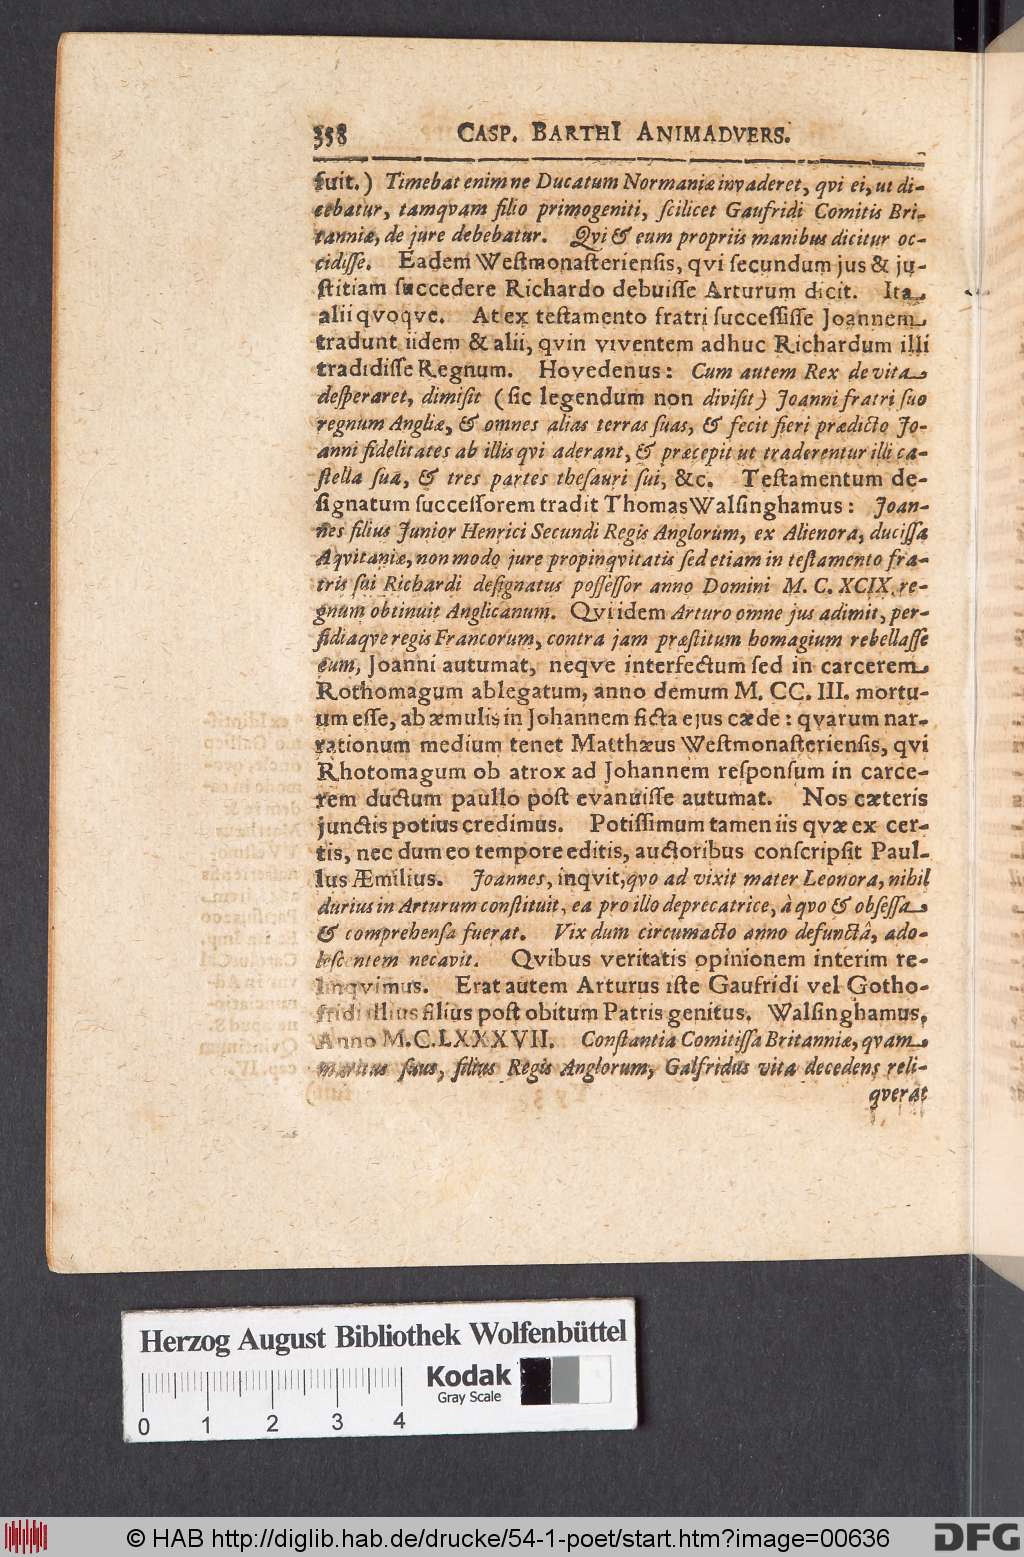 358 CASP. BARTHI ANIMADVERS.
fuit.) Timebat enim ne Ducatum Normaniæ invaderet, qvi ei, ut di-
cebatur, tamqvam filio primogeniti, scilicet Gaufridi Comitis Bri-
tanniæ, de jure debebatur. Qvi & eum propriis manibus dicitur oc-
cidisse. Eadem Westmonasteriensis, qvi secundum jus & ju-
stitiam succedere Richardo debuisse Arturum dicit. Ita
alii qvoqve. At ex testamento fratri successisse Joannem
tradunt iidem & alii, qvin viventem adhuc Richardum illi
tradidisse Regnum. Hovedenus: Cum autem Rex de vita
desperaret, dimisit (sic legendum non divisit) Joanni fratri suo
regnum Angliæ, & omnes alias terras suas, & fecit fieri prædicto Jo-
anni fidelitates ab illis qvi aderant, & præcepit ut traderentur illi ca-
stella sua, & tres partes thesauri sui, &c. Testamentum de-
signatum successorem tradit Thomas Walsinghamus: Joan-
nes filius Junior Henrici Secundi Regis Anglorum, ex Alienora, ducissa
Aqvitaniæ, non modo jure propinqvitatis sed etiam in testamento fra-
tris sui Richardi designatus possessor anno Domini M. C. XCIX. re-
gnum obtinuit Anglicanum. Qvi idem Arturo omne jus adimit, per-
fidiaqve regis Francorum, contra jam præstitum homagium rebellasse
eum, Joanni autumat, neqve interfectum sed in carcerem
Rothomagum ablegatum, anno demum M. CC. III. mortu-
um esse, ab æmulis in Johannem ficta ejus cæde: qvarum nar-
rationum medium tenet Matthæus Westmonasteriensis, qvi
Rhotomagum ob atrox ad Johannem responsum in carce-
rem ductum paullo post evanuisse autumat. Nos cæteris
junctis potius credimus. Potissimum tamen iis qvæ ex cer-
tis, nec dum eo tempore editis, auctoribus conscripsit Paul-
lus Æmilius. Joannes, inqvit, qvo ad vixit mater Leonora, nihil
durius in Arturum constituit, ea pro illo deprecatrice, à qvo & obsessa
& comprehensa fuerat. Vix dum circumacto anno defunctâ, ado-
lescentem necavit. Qvibus veritatis opinionem interim re-
linqvimus. Erat autem Arturus iste Gaufridi vel Gotho-
fridi illius filius post obitum Patris genitus. Walsinghamus,
Anno M.C.LXXXVII. Constantia Comitissa Britanniæ, qvam
maritus suus, filius Regis Anglorum, Galfridus vita decedens reli-
qverat
Herzog August Bibliothek Wolfenbüttel
Kodak
Gray Scale
0 1 2 3 4
© HAB http://diglib.hab.de/drucke/54-1-poet/start.htm?image=00636
DFG